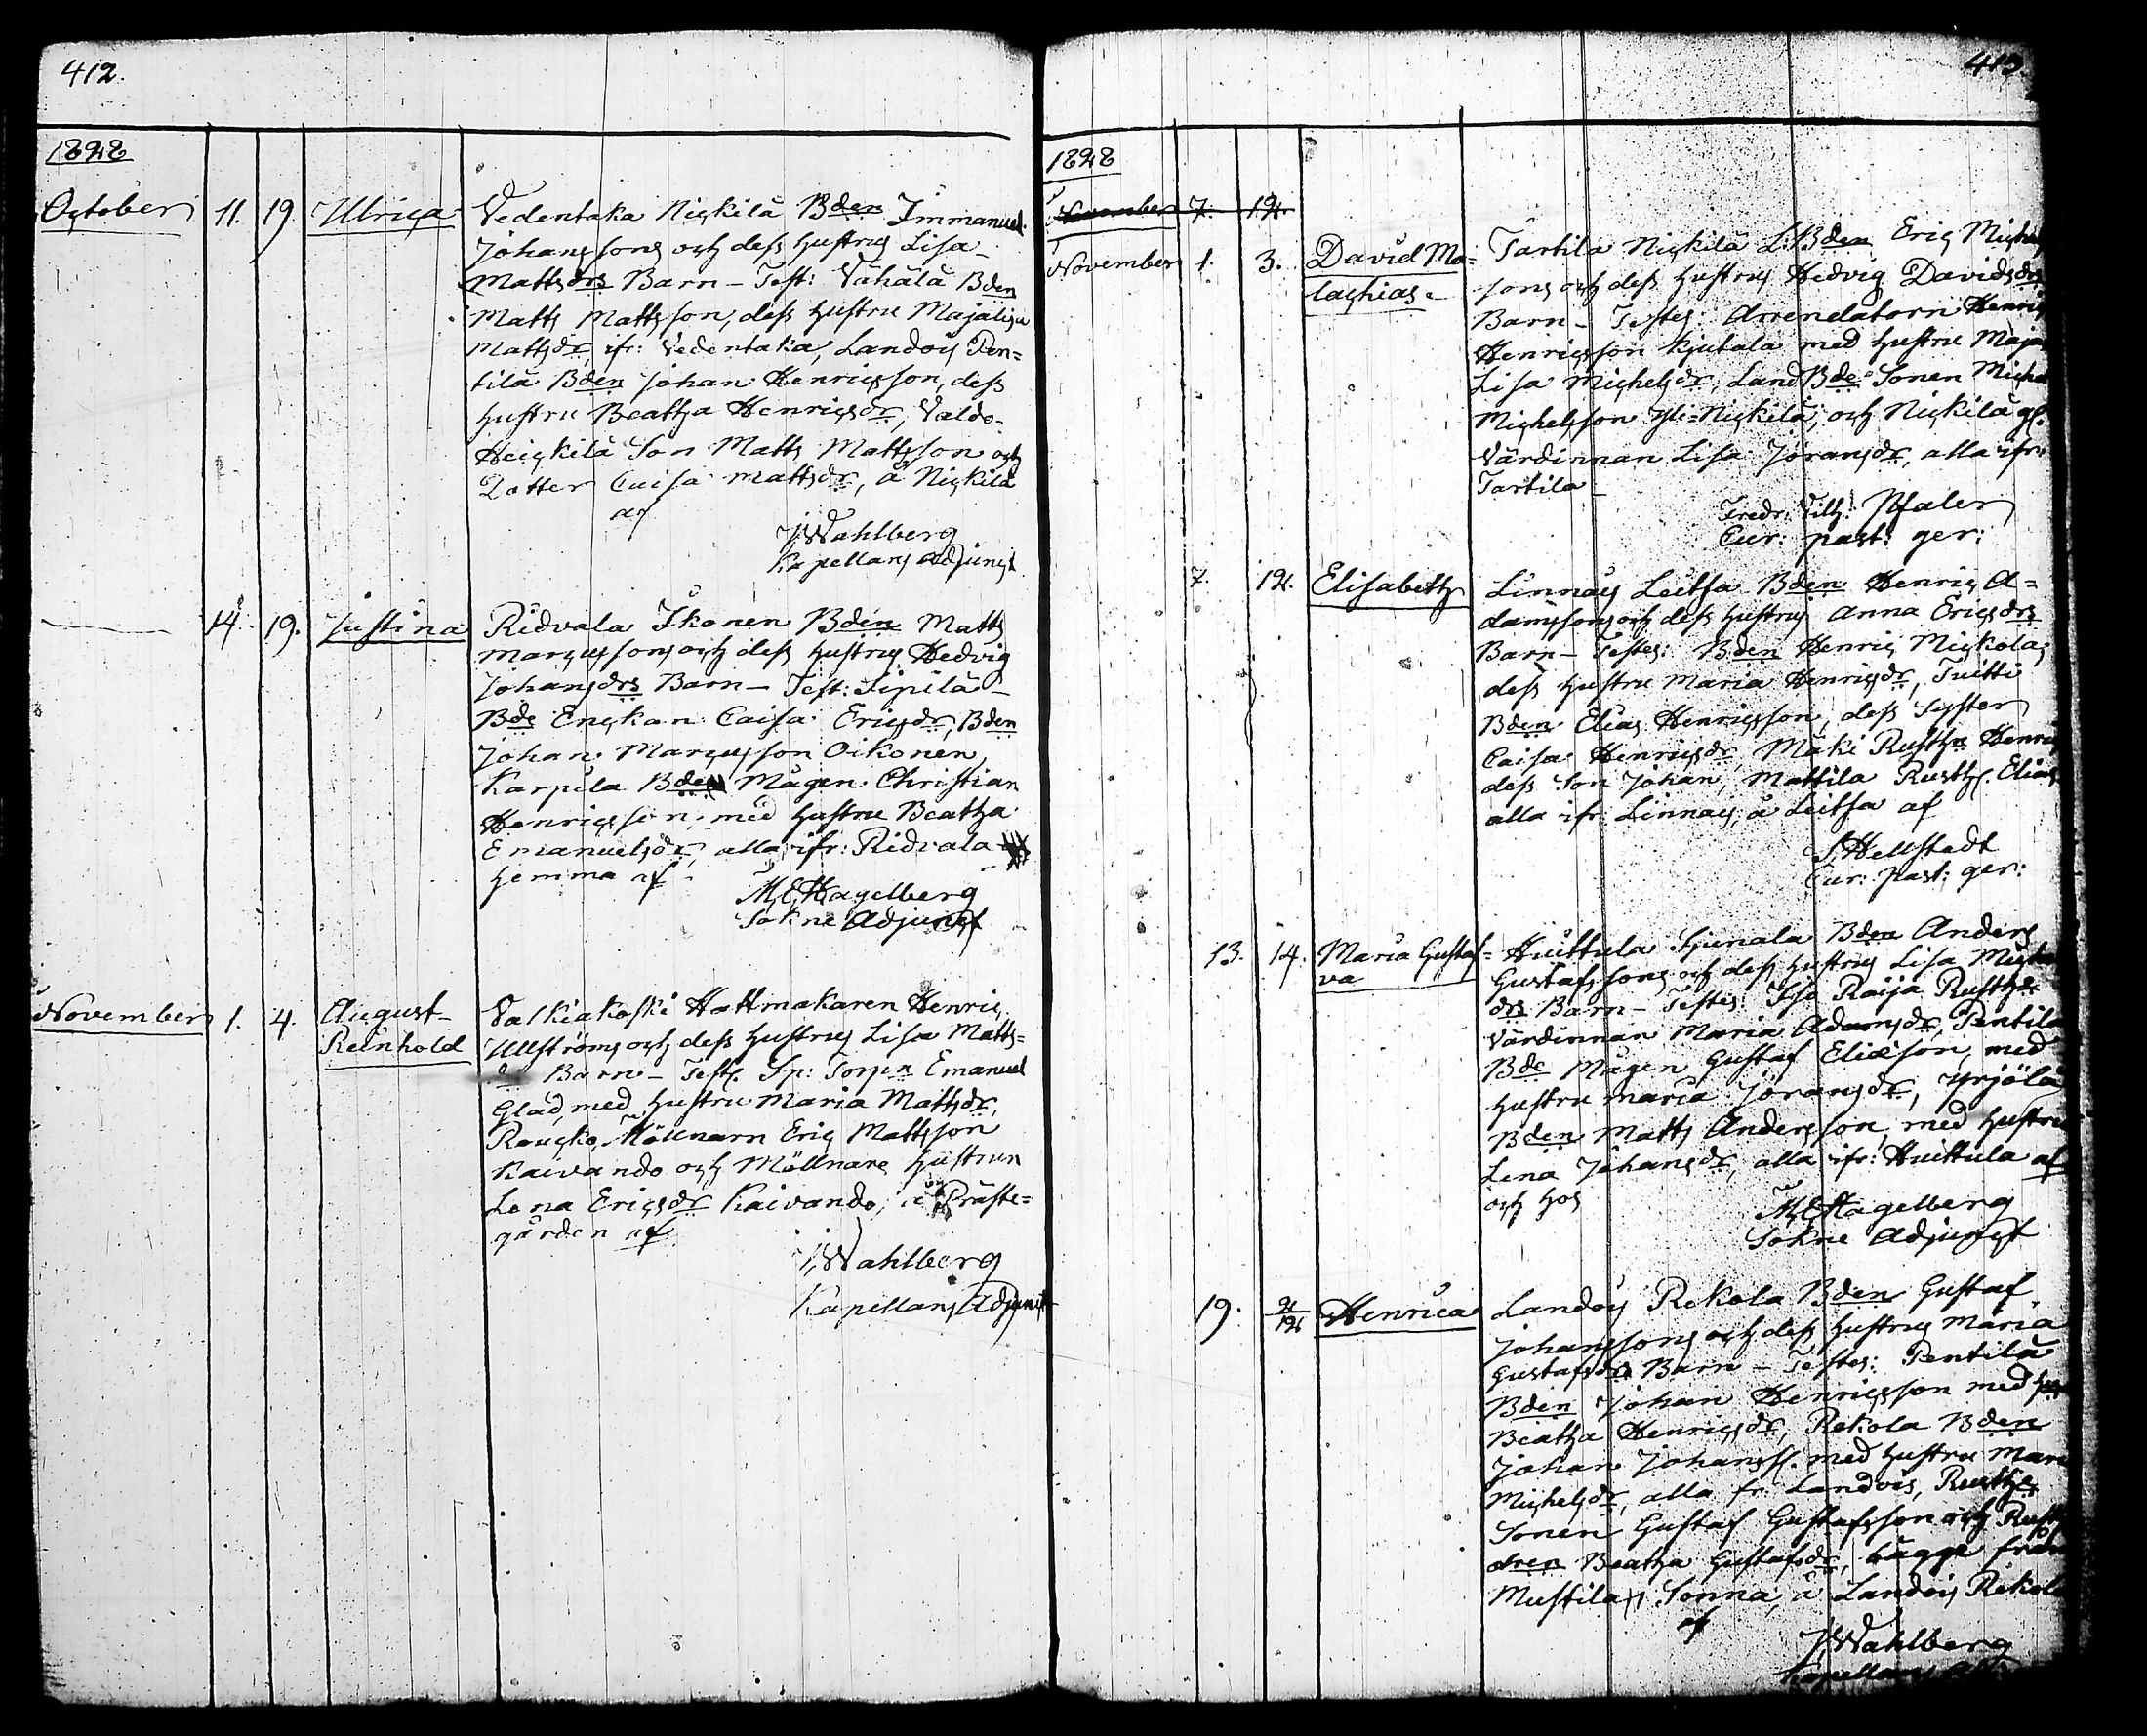 412.
1828
October 11. 19. Ulrica Vedentaka Nickilä Bden Immanuel
Johanssons och dess hustrus Lisa
Mattsdrs Barn - Test: Vähälä Bden
Matts Mattsson, dess hustru Majalisa
Mattsdr, ifr: Vedentaka, Landois Pen=
tilä Bden Johan Henricsson, dess
hustru Beatha Henricsdr, Valdo-
Heickilä Son Matts Mattsson och
Dotter Caisa Mattsdr, å Nickilä
af
J Wahlberg
Kapellans Adjunct
14. 19. Justina Ridvala Ikonen Bden Matts
Marcussons och dess hustrus Hedvig
Johansdrs Barn - Test: Sipilä
Bde Enckan Caisa Ericsdr, Bden
Johan Marcusson Oikonen,
Karpila Bde Mågen Christian
Henricsson, med hustru Beatha
Emanuelsdr, alla ifr: Ridvala
hemma af
M E Hagelberg
Sokne Adjunct
November 1. 4. August
Reinhold
Valkiakoski Hattmakaren Henric
Ullströms och dess hustrus Lisa Matts=
Barn - Test. Sp: Torpn Emanuel
Glad, med hustru Maria Mattsdr,
Roucko, Möllnarn Eric Mattsson
Kaivando och Möllnare hustrun
Lena Ericsdr Kaivando, i Präste=
gården af
J Wahlberg
Kapellans Adjunct
413.
1828
November 7. 12.
November 1. 3. David Ma=
lachias
Tartila Nickilä L:Bden Eric Michels
sons och dess hustrus Hedvig Davidsdrs
Barn - Testes: Arrendatorn Henric
Henricsson Kjutala med hustru Maja
Lisa Michelsdr, LandBde Sonen Michel
Michelsson Yli-Nickilä, och Nickilä gl.
Värdinnan Lisa Jöransdr, alla ifr:
Tartila
Fredr: Vilh: Pfaler
Cur: past: ger:
7. 12. Elisabeth Linnais Leitsa Bden Henric A=
damssons och dess hustrus Anna Ericsdrs
Barn - Testes: Bden Henric Mickola,
dess hustru Maria Henricsdr, Tuitti
Bden Elias Henricsson, dess Syster
Caisa Henricsdr, Mäki Rusthn Henric
dess Son Johan, Mattila Rusth. Elias
alla ifr Linnais, å Leitsa af
S Hellstedt
Cur: past: ger:
13. 14. Maria Gustaf=
va
Huittula Sjunala Bden Anders
Gustafssons och dess hustrus Lisa Michels
drs Barn - Testes: Iso Raija Rusth:
Värdinnan Maria Adamsdr, Pentilä
Bde Mågen Gustaf Eliæson, med
hustru Maria Jöransdr, Yrjölä
Bden Matts Andersson, med hustru
Lena Johansdr, alla ifr: Huittula af
och hos
M E Hagelberg
Sokne Adjunct
19. 2/12 Henrica Landois Rekola Bden Gustaf
Johanssons och dess hustrus Maria
Gustafsdrs Barn - Testes: Pentilä
Bden Johan Henricsson med hus
Beatha Henricsdr, Rekola Bden
Johan Johanss. med hustru Maria
Michelsdr, alla fr: Landois, Rusth:
Sonen Gustaf Gustafsson och Rusth
dren Beatha Gustafsdr, bägge från
Mustila i Sonna, å Landois Rekola
af
J Wahlberg
Kapellans Adj: